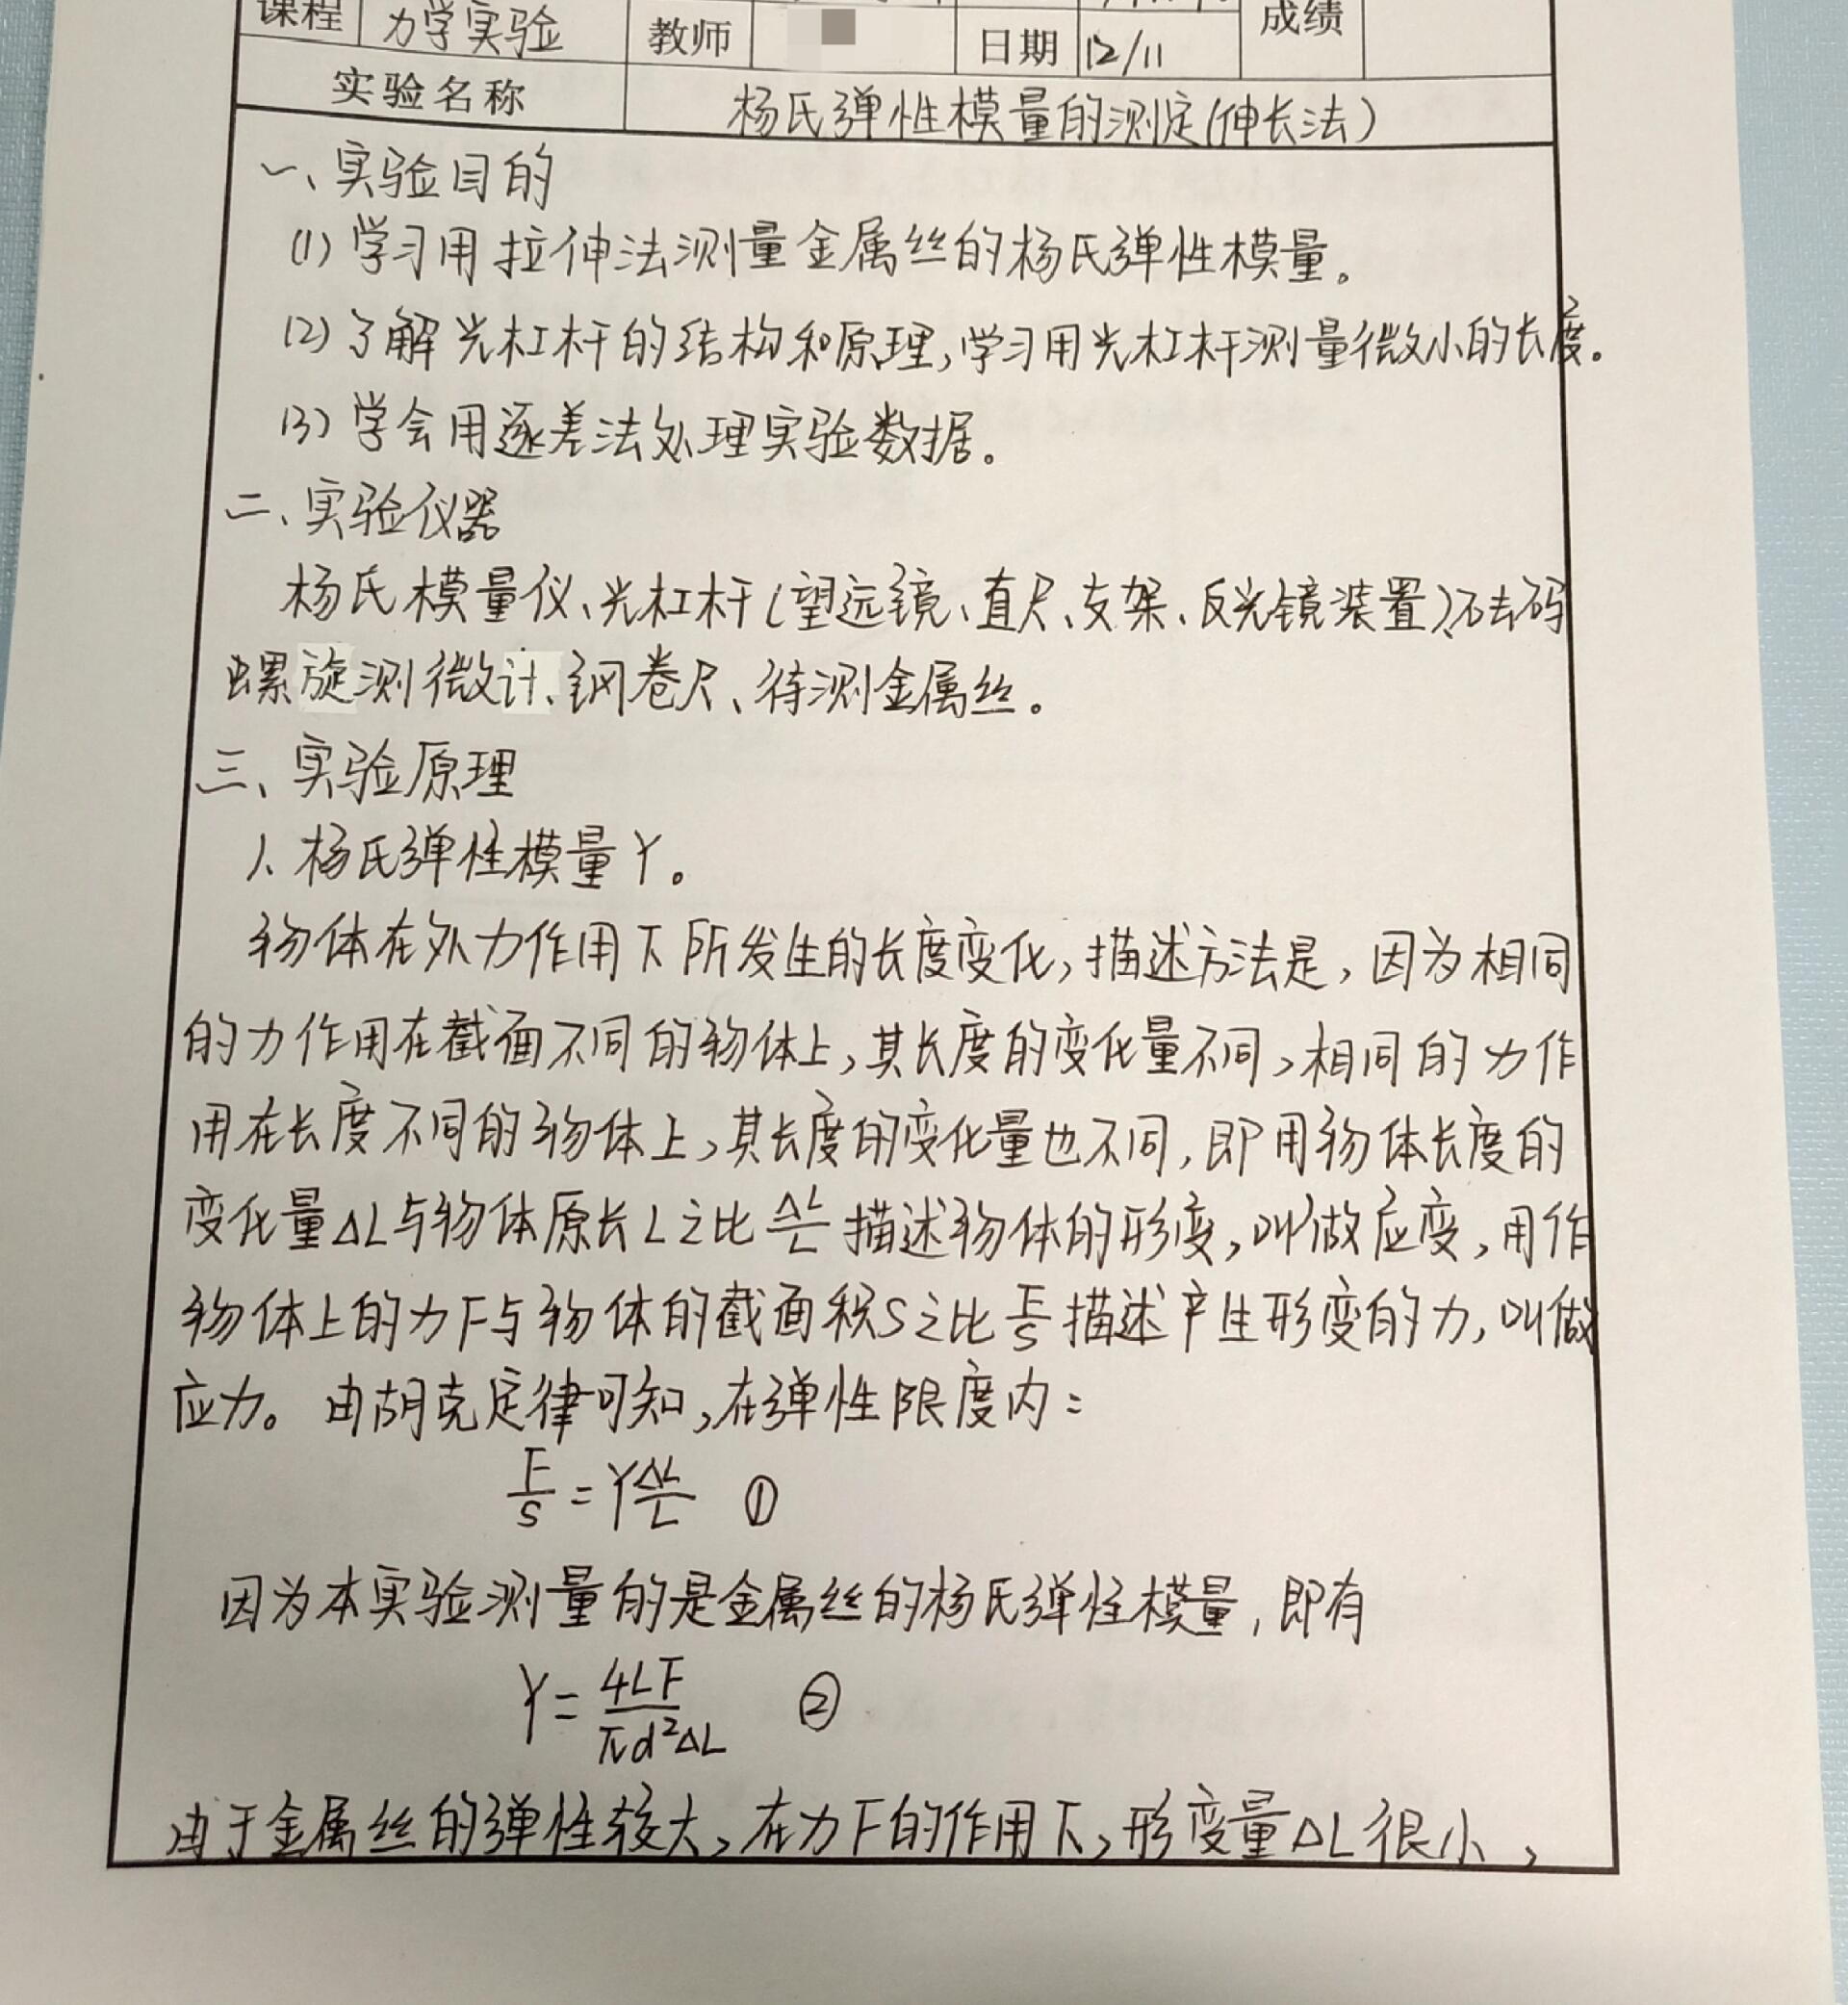 课程 力学实验 教师 日期 12/11 成绩
实验名称 杨氏弹性模量的测定(伸长法)
一、实验目的
(1) 学习用拉伸法测量金属丝的杨氏弹性模量。
(2) 了解光杠杆的结构和原理,学习用光杠杆测量微小的长度。
(3) 学会用逐差法处理实验数据。
二、实验仪器
杨氏模量仪、光杠杆(望远镜、直尺、支架、反光镜装置)、砝码
螺旋测微计、钢卷尺、待测金属丝。
三、实验原理
1、杨氏弹性模量Y。
物体在外力作用下所发生的长度变化,描述方法是,因为相同
的力作用在截面不同的物体上,其长度的变化量不同,相同的力作
用在长度不同的物体上,其长度的变化量也不同,即用物体长度的
变化量ΔL与物体原长L之比 ΔL/L 描述物体的形变,叫做应变,用作
物体上的力F与物体的截面积S之比 F/S 描述产生形变的力,叫做
应力。由胡克定律可知,在弹性限度内:
F/S = Y ΔL/L ①
因为本实验测量的是金属丝的杨氏弹性模量,即有
Y = 4LF/πd²ΔL ②
由于金属丝的弹性较大,在力F的作用下,形变量ΔL很小,